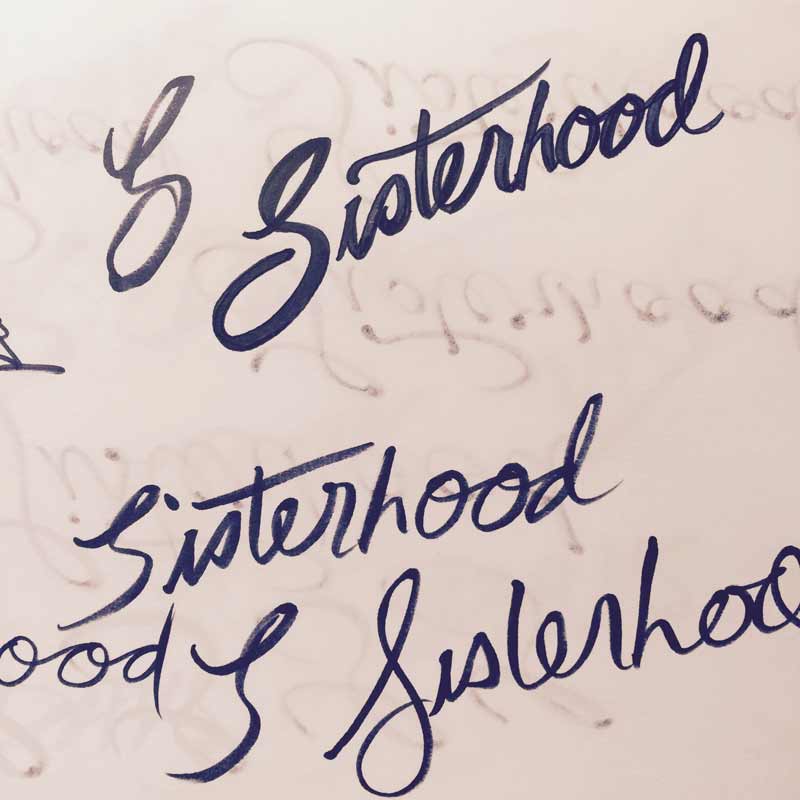 S Sisterhood
Sisterhood
ood S Sisterhoo